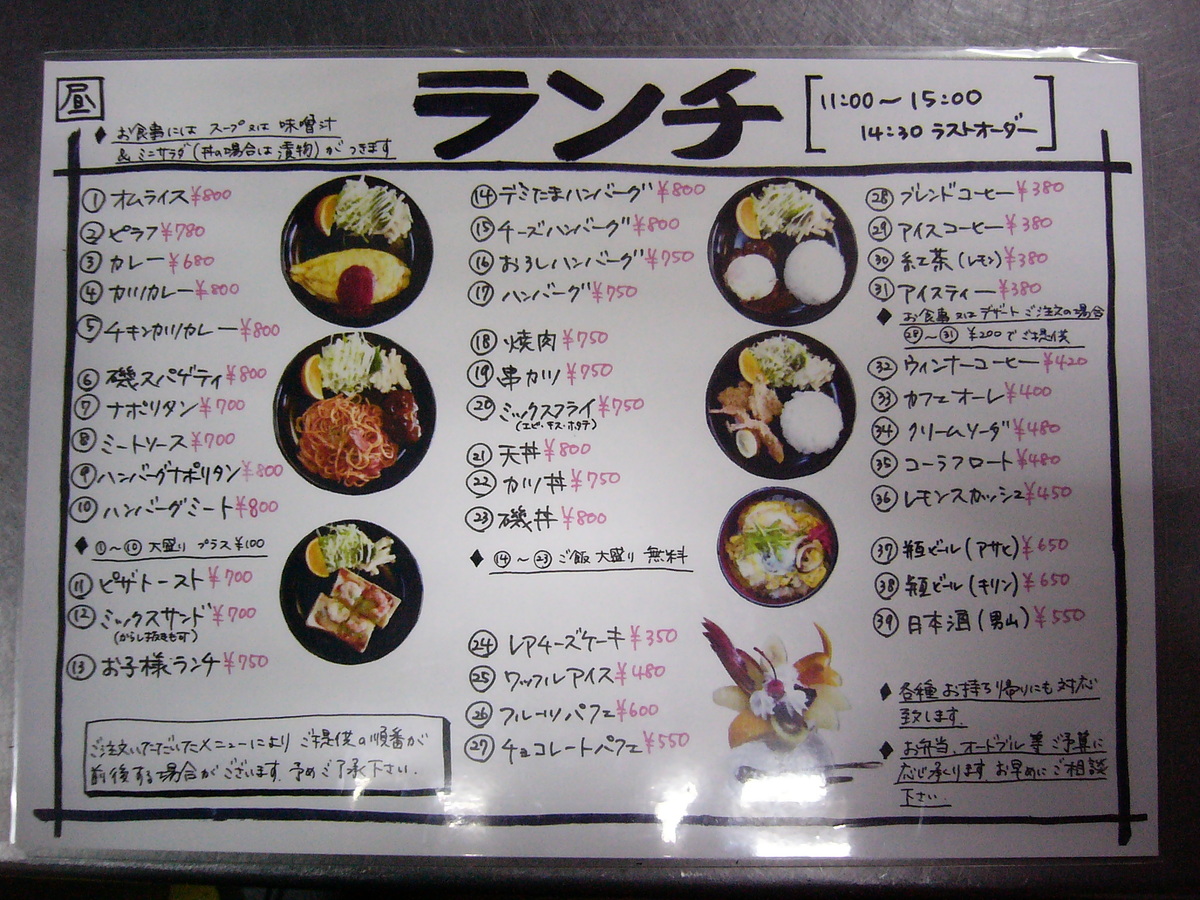 昼
ランチ
11:00～15:00
14:30 ラストオーダー
◆お食事には スープ又は 味噌汁
& ミニサラダ(丼の場合は 漬物)が つきます
① オムライス ¥800
② ピラフ ¥780
③ カレー ¥680
④ カツカレー ¥800
⑤ チキンカツカレー ¥800
⑥ 磯スパゲティ ¥800
⑦ ナポリタン ¥700
⑧ ミートソース ¥700
⑨ ハンバーグナポリタン ¥800
⑩ ハンバーグミート ¥800
◆ ①～⑩ 大盛り プラス ¥100
⑪ ピザトースト ¥700
⑫ ミックスサンド ¥700
(からし抜きもす)
⑬ お子様ランチ ¥750
ご注文いただいたメニューにより ご提供の順番が
前後する場合がございます.予めご了承下さい.
⑭ デミたまハンバーグ ¥800
⑮ チーズハンバーグ ¥800
⑯ おろしハンバーグ ¥750
⑰ ハンバーグ ¥750
⑱ 焼肉 ¥750
⑲ 串カツ ¥750
⑳ ミックスフライ ¥750
(エビ・キス・ホタテ)
㉑ 天丼 ¥800
㉒ カツ丼 ¥750
㉓ 磯丼 ¥800
◆ ⑭～㉓ ご飯 大盛り 無料
㉔ レアチーズケーキ ¥350
㉕ ワッフルアイス ¥480
㉖ フルーツパフェ ¥600
㉗ チョコレートパフェ ¥550
㉘ ブレンドコーヒー ¥380
㉙ アイスコーヒー ¥380
㉚ 紅茶(レモン) ¥380
㉛ アイスティー ¥380
◆ お食事 又は デザート ご注文の場合
㉘～㉛ ¥200で ご提供
㉜ ウィンナーコーヒー ¥420
㉝ カフェオーレ ¥400
㉞ クリームソーダ ¥480
㉟ コーラフロート ¥480
㊱ レモンスカッシュ ¥450
㊲ 瓶ビール(アサヒ) ¥650
㊳ 瓶ビール(キリン) ¥650
㊴ 日本酒(男山) ¥550
◆ 各種お持ち帰りにも対応
致します.
◆ お弁当、オードブル等 ご予算に
応じ承ります.お早めにご相談
下さい